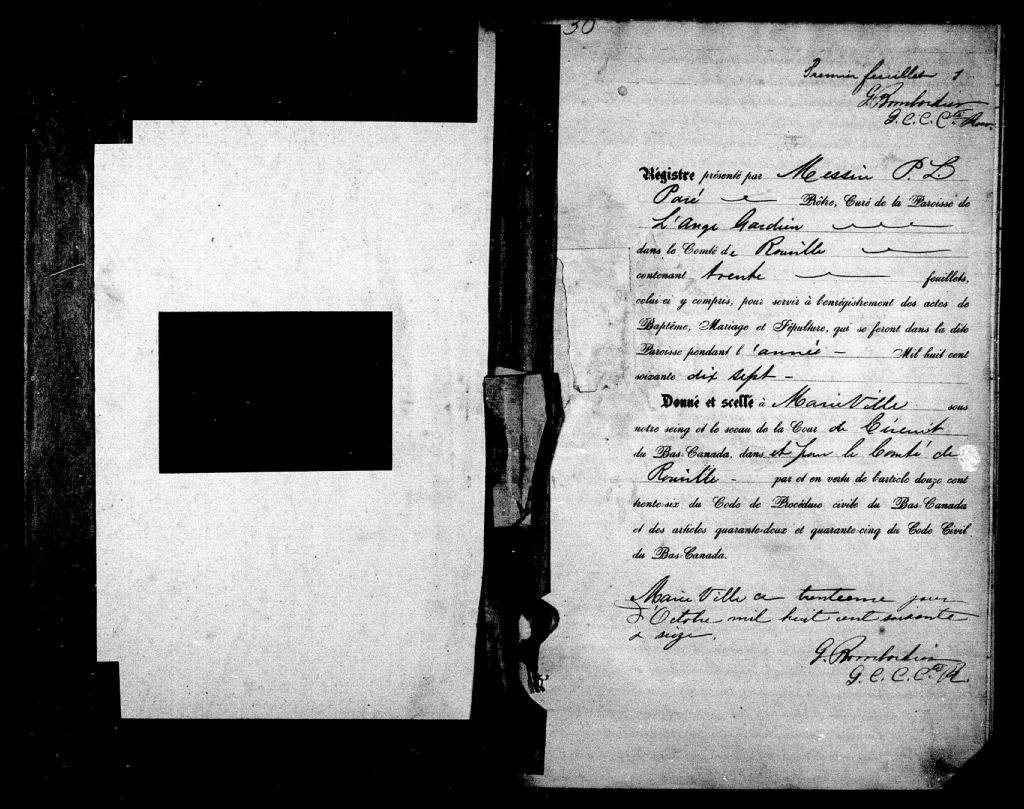 30
Premier feuillet 1
G. Bombardier
G. C. C. Cté Rou.
Régistre présenté par Messire P. L
Paré Prêtre, Curé de la Paroisse de
L'Ange Gardien
dans le Comté de Rouville
contenant trente feuillets,
celui-ci y compris, pour servir à l'enrégistrement des actes de
Baptême, Mariage et Sépulture, qui se feront dans la dite
Paroisse pendant l'année – Mil huit cent
soixante dix sept –
Donné et scellé à MarieVille sous
notre seing et le sceau de la Cour de Circuit
du Bas-Canada, dans et pour le Comté de
Rouville – par et en vertu de l'article douze cent
trente-six du Code de Procédure civile du Bas-Canada
et des articles quarante-deux et quarante-cinq du Code Civil
du Bas-Canada.
MarieVille ce trentieme jour
d'Octobre mil huit cent soixante
& seize.
G. Bombardier
G. C. C. Cté R.